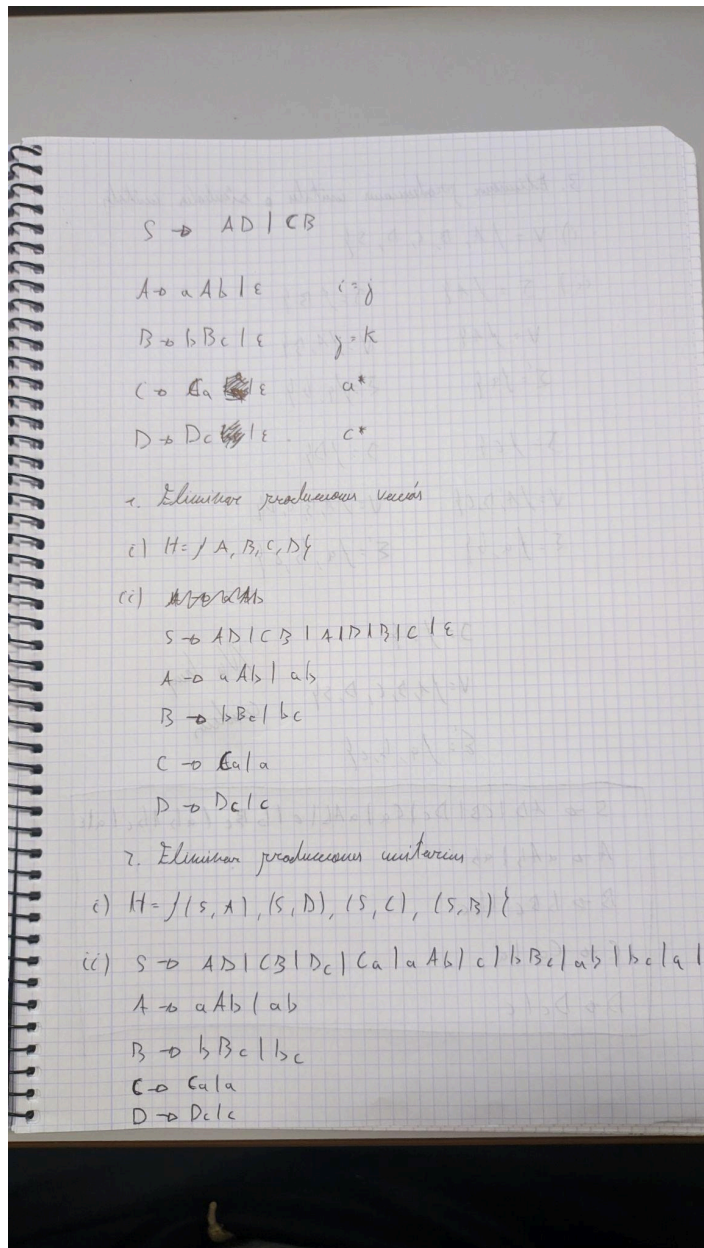 S → AD | CB
A → aAb | ε i = j
B → bBc | ε j = K
C → Ca | ε a*
D → Dc | ε c*
1. Eliminar producciones vacías
i) H = { A, B, C, D }
ii)
S → AD | CB | A | D | B | C | ε
A → aAb | ab
B → bBc | bc
C → Ca | a
D → Dc | c
2. Eliminar producciones unitarias
i) H = { (S, A), (S, D), (S, C), (S, B) }
ii) S → AD | CB | Dc | Ca | aAb | c | bBc | ab | bc | a |
A → aAb | ab
B → bBc | bc
C → Ca | a
D → Dc | c